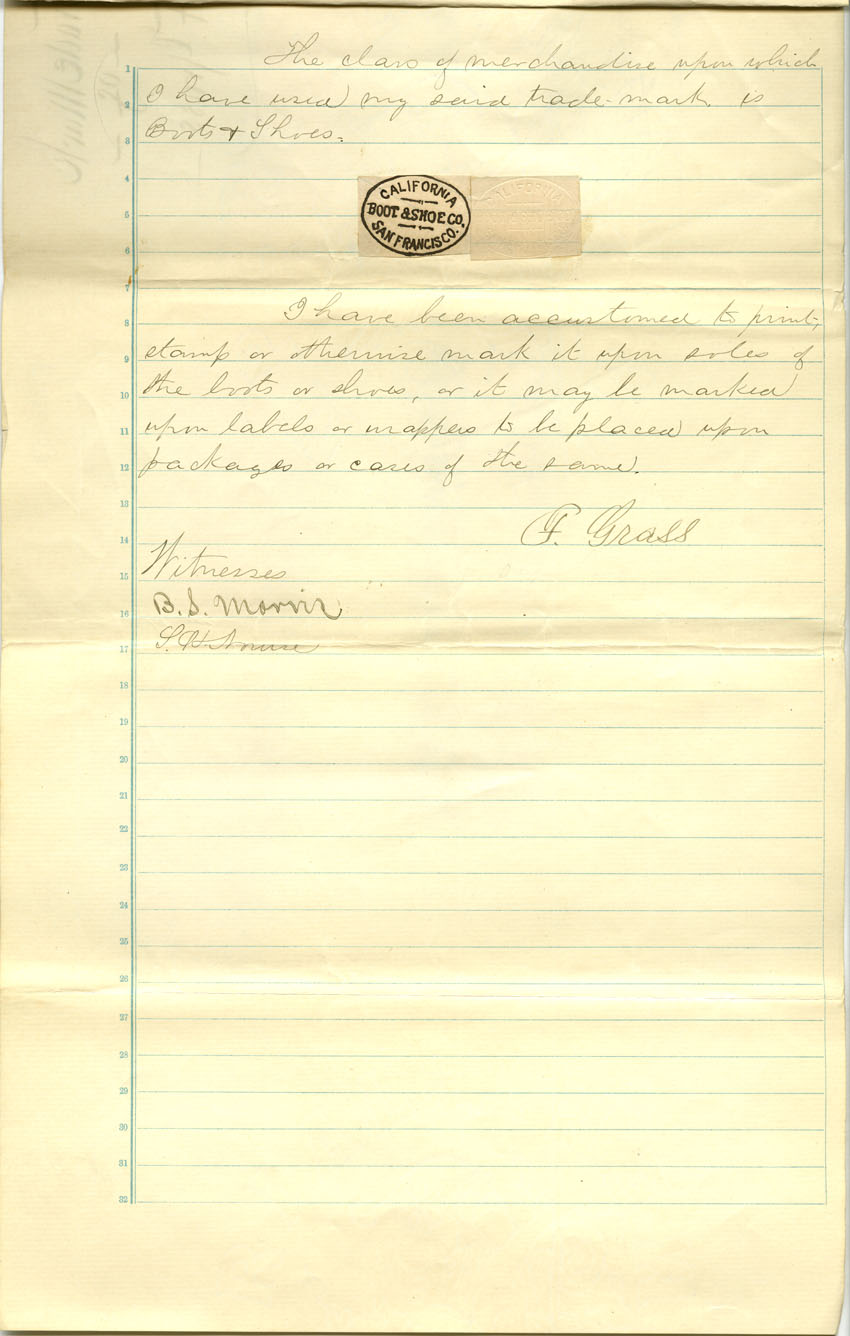 The class of merchandise upon which
I have used my said trade-mark is
Boots & Shoes.
CALIFORNIA
BOOT & SHOE CO.
SAN FRANCISCO.
CALIFORNIA
I have been accustomed to print,
stamp or otherwise mark it upon soles of
the boots or shoes, or it may be marked
upon labels or wrappers to be placed upon
packages or cases of the same.
F. Grass
Witnesses
B. S.
S. H.
1
2
3
4
5
6
7
8
9
10
11
12
13
14
15
16
17
18
19
20
21
22
23
24
25
26
27
28
29
30
31
32